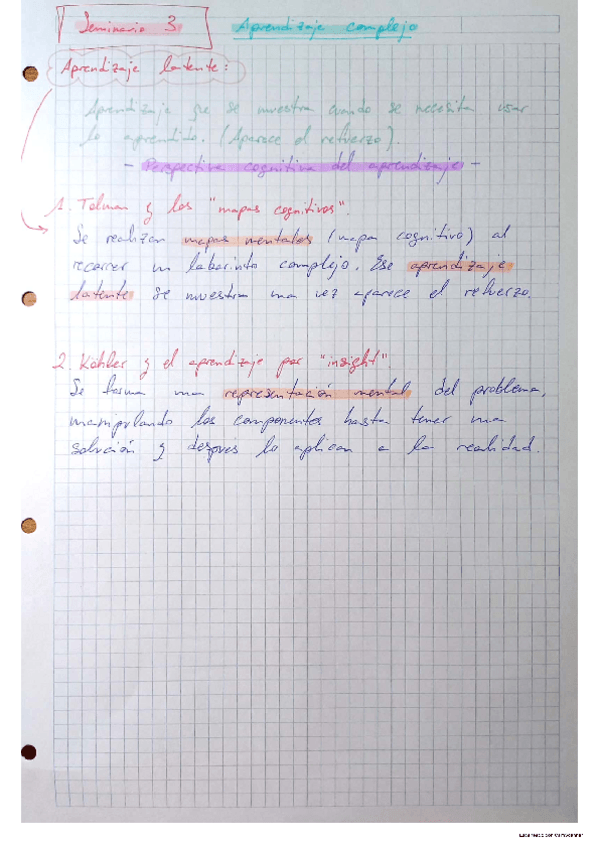 Seminario 3 Aprendizaje complejo
Aprendizaje latente:
Aprendizaje que se muestra cuando se necesita usar
lo aprendido. (Aparece el refuerzo).
- Perspectiva cognitiva del aprendizaje -
1. Tolman y los "mapas cognitivos".
Se realizan mapas mentales (mapa cognitivo) al
recorrer un laberinto complejo. Ese aprendizaje
latente se muestra una vez aparece el refuerzo.
2. Köhler y el aprendizaje por "insight".
Se forma una representación mental del problema,
manipulando los componentes hasta tener una
solución y despues lo aplican a la realidad.